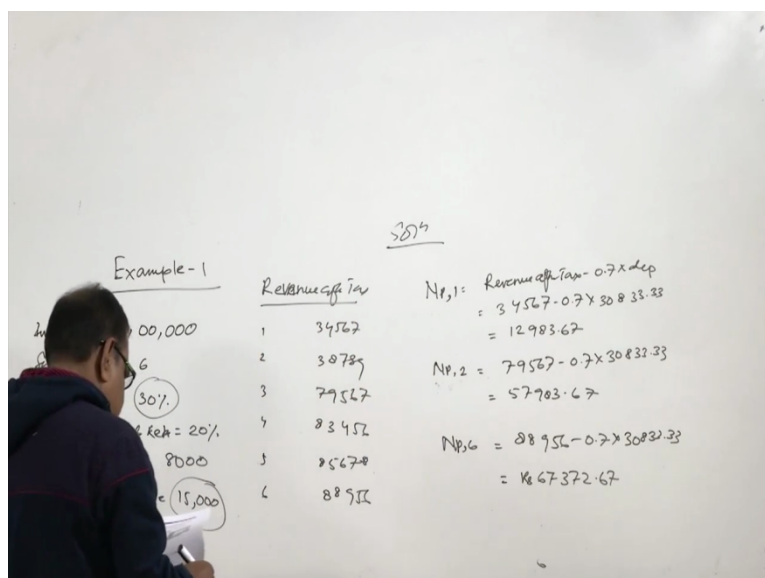 Soln
Example-1
,00,000
6
30%
= 20%
8000
= 15,000
Revenue after Tax
1 34567
2 38789
3 79567
4 83456
5 85678
6 88956
NP,1 = Revenue after Tax - 0.7 x dep
= 34567 - 0.7 x 30833.33
= 12983.67
NP,2 = 79567 - 0.7 x 30833.33
= 57983.67
NP,6 = 88956 - 0.7 x 30833.33
= Rs 67372.67